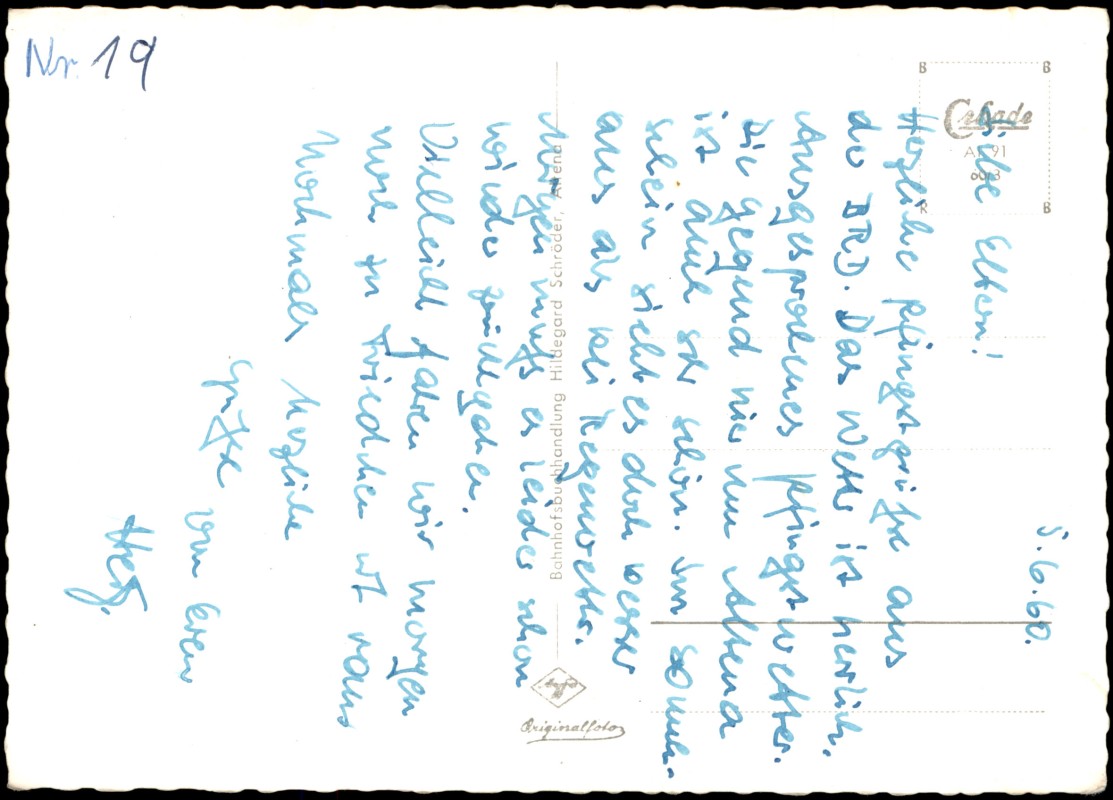 Nr. 19
5.6.60.
Liebe Eltern!
Herzliche Pfingstgrüße aus
der BRD. Das Wetter ist herrlich.
Ausgesprochenes Pfingstwetter.
Die Gegend hier um Altena
ist auch sehr schön. Im Sonnen-
schein sieht es doch besser
aus als bei Regenwetter.
Morgen muß es leider schon
wieder zurückgehen.
Vielleicht fahren wir morgen
noch zu Friedchen
Nochmals herzliche
Grüße von Eurem
B B
Cekade
B B
Bahnhofsbuchhandlung Hildegard Schröder, Altena
Agfa
Originalfoto